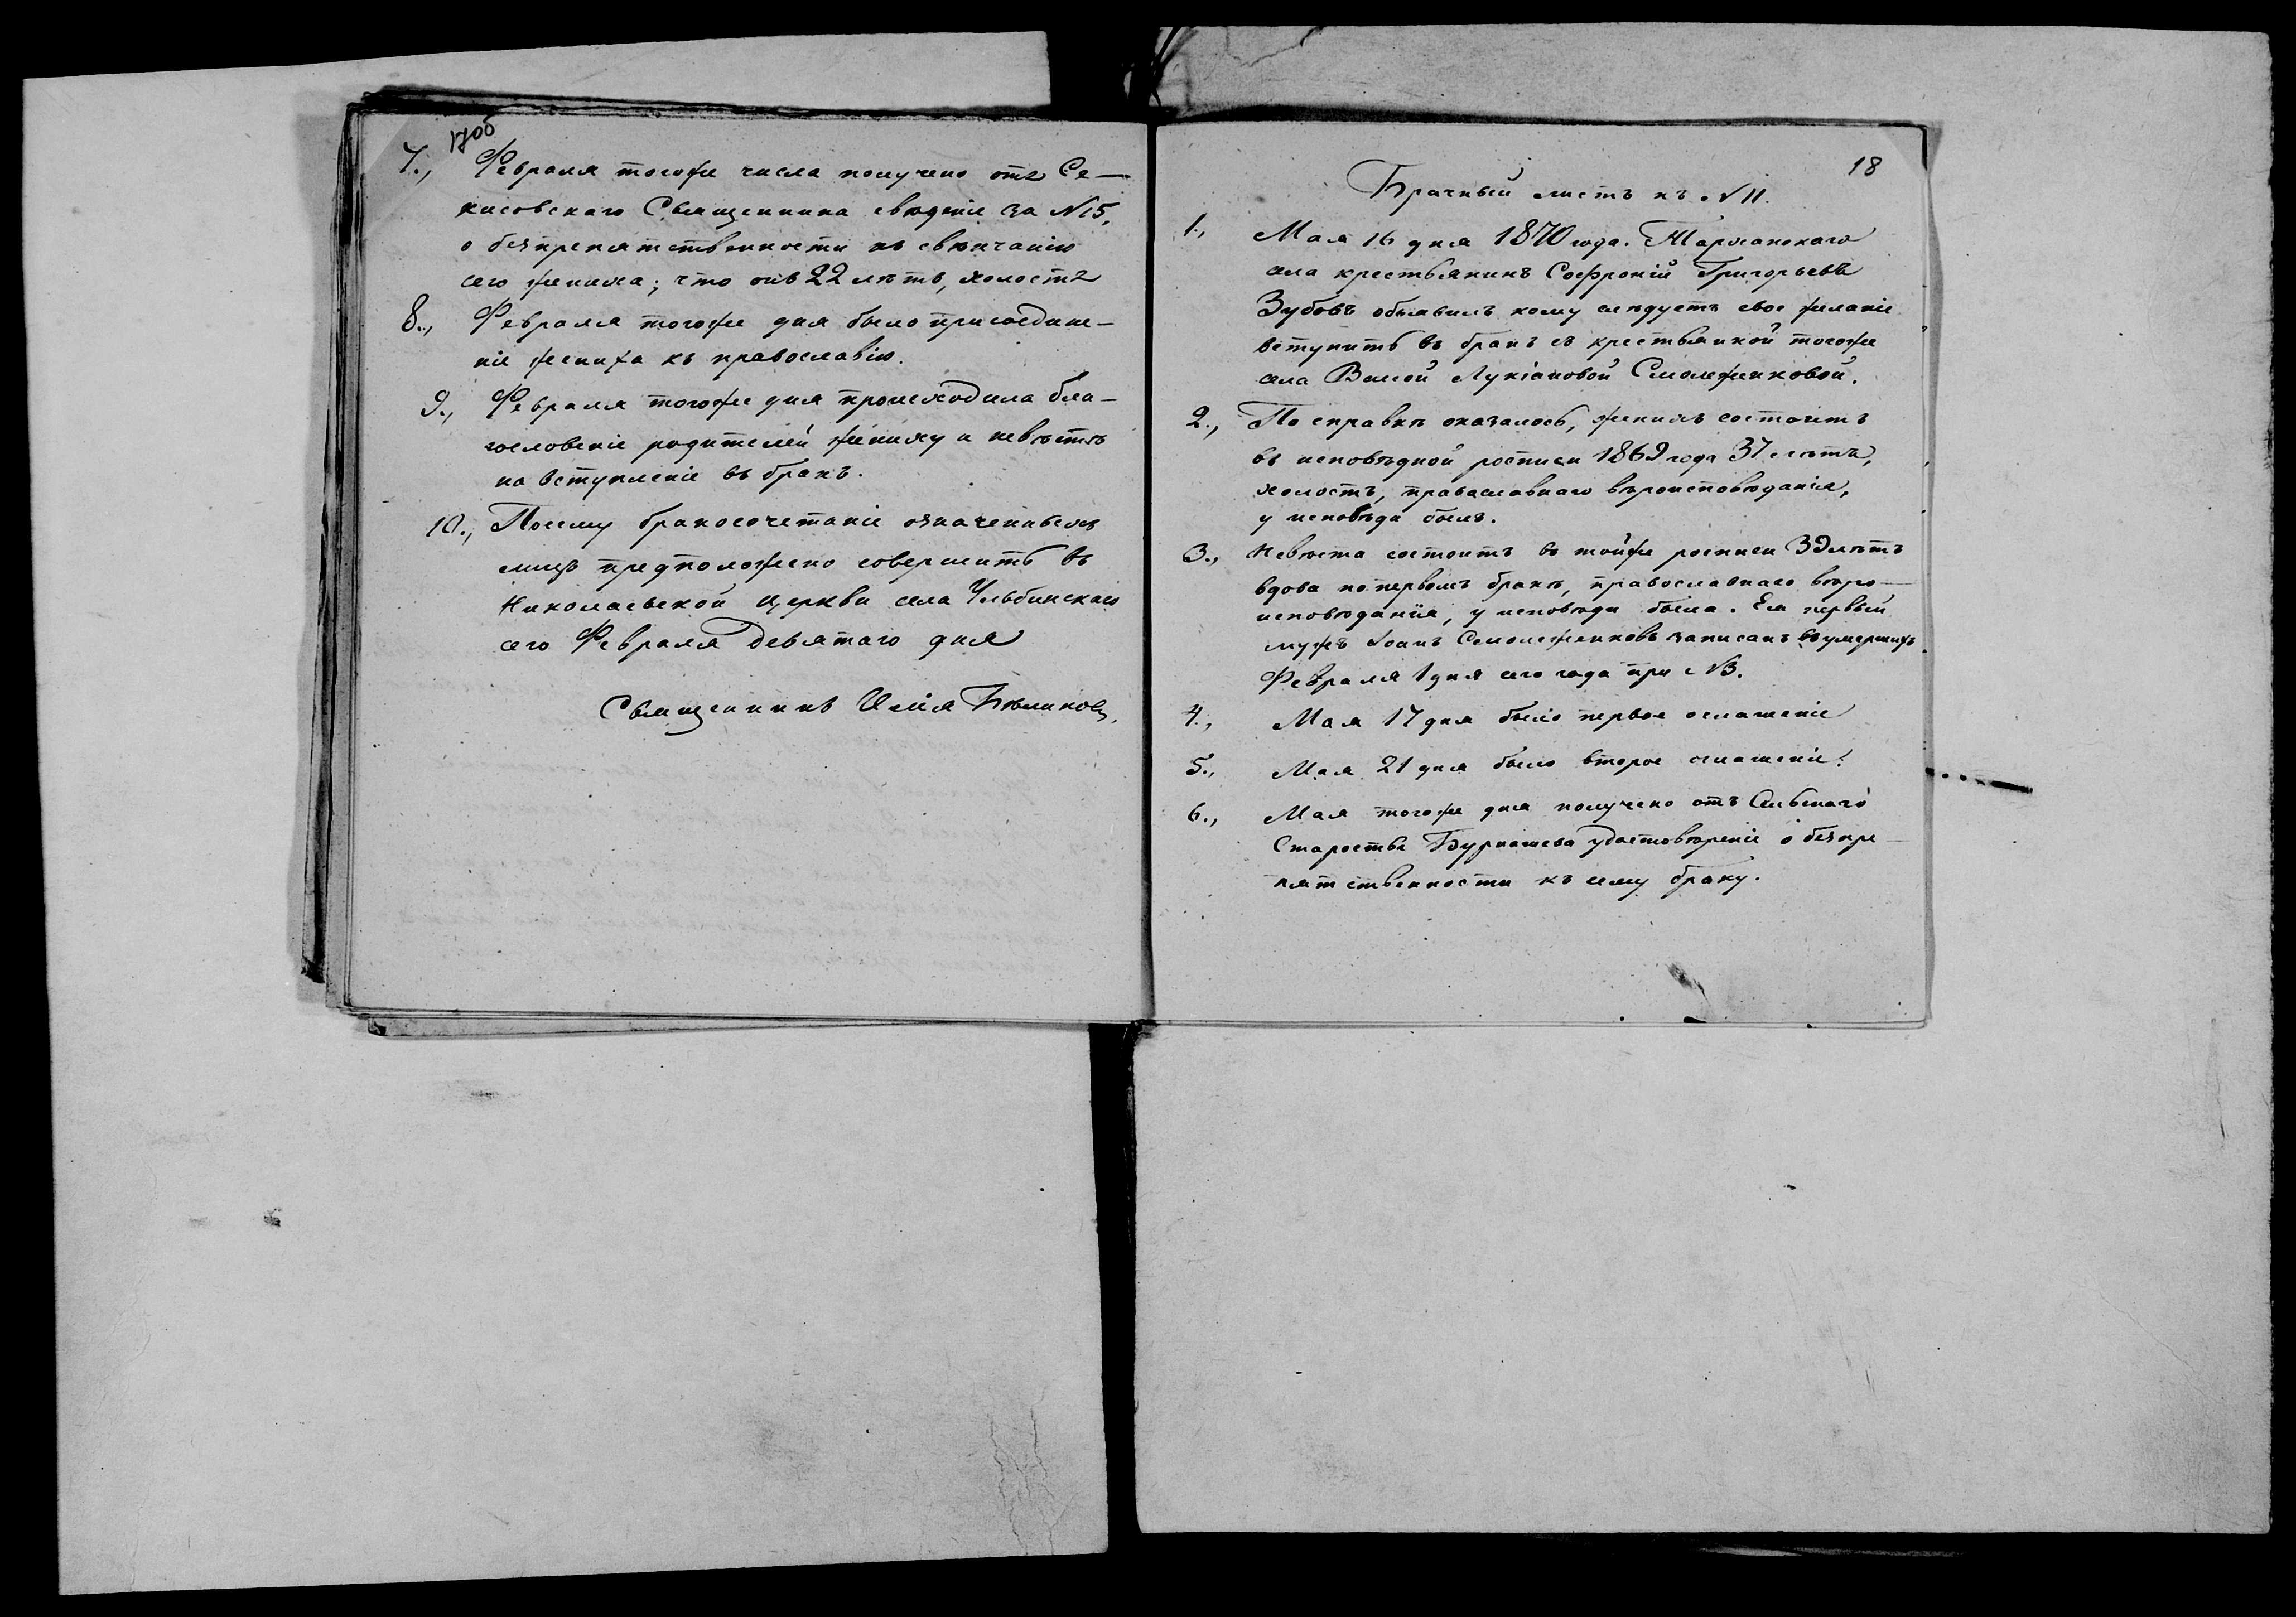 17об
7., Февраля тогоже числа получено отъ Се-
кисовскаго Священника сведѣніе за №15,
о безпрепятственности къ свѣнчанію
сего жениха; что онъ 22 лѣтъ, холостъ
8., Февраля тогоже дня было присоедине-
ніе жениха къ православію.
9., Февраля тогоже дня происходила бла-
гословеніе родителей жениху и невѣстѣ
на вступленіе въ бракъ.
10., Посему бракосочетаніе означенныхъ
лицъ предположено совершить въ
Николаевской церкви села Ульбинскаго
сего Февраля Девятаго дня
Священникъ Илія Бѣликовъ.
18
Брачный листъ къ №11.
1., Мая 16 дня 1870 года. Тарханскаго
села крестьянинъ Софроній Григорьевъ
Зубовъ объявилъ кому слѣдуетъ свое желаніе
вступить въ бракъ съ крестьянкой тогоже
села Вассой Лукіановой Смоляженковой.
2., По справкѣ оказалось, женихъ состоитъ
въ исповѣдной росписи 1869 года 37 лѣтъ,
холостъ, православнаго вѣроисповѣданія,
у исповѣди былъ.
3., Невѣста состоитъ въ тойже росписи 39 лѣтъ
вдова по первомъ бракѣ, православнаго вѣро-
исповѣданія, у исповѣди была. Ея первый
мужъ Іоанъ записанъ въ умершихъ
Февраля 1 дня сего года при №3.
4., Мая 17 дня было первое оглашеніе
5., Мая 21 дня было второе оглашеніе.
6., Мая тогоже дня получено отъ Сельскаго
Старосты Бурнашева удостовѣреніе о безпре-
пятственности къ сему браку.